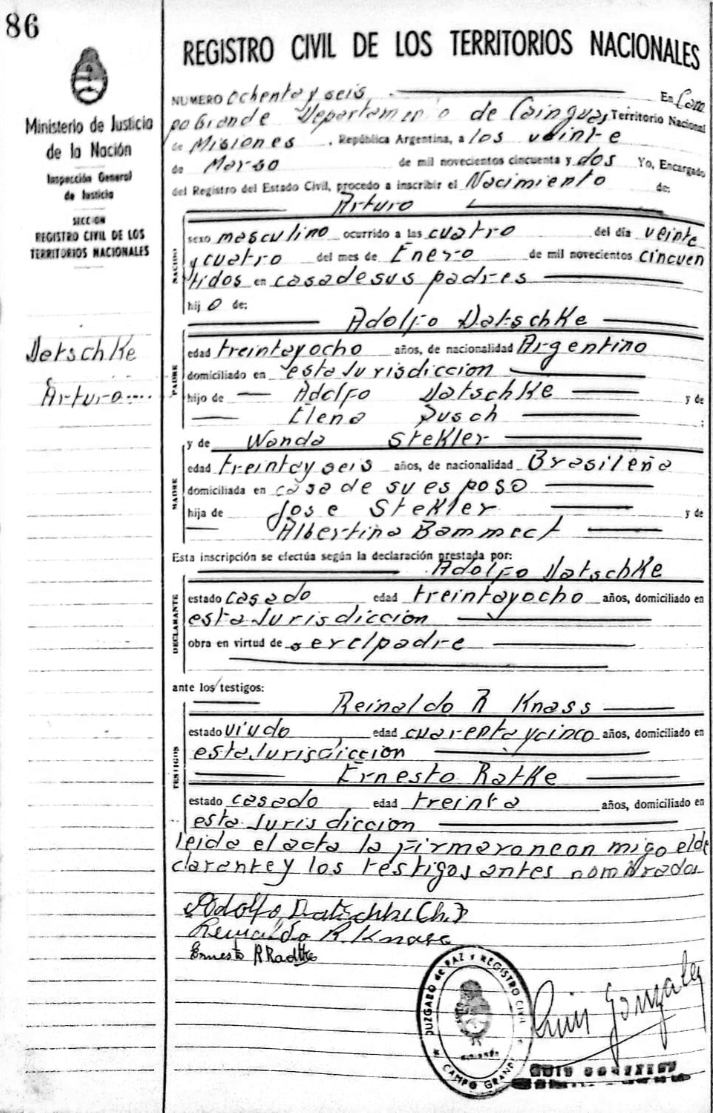 86
REGISTRO CIVIL DE LOS TERRITORIOS NACIONALES
Ministerio de Justicia
de la Nación
Inspección General
de Justicia
SECCION
REGISTRO CIVIL DE LOS
TERRITORIOS NACIONALES
Datschke
Arturo
NUMERO ochenta y seis En Cam
po Grande Departamento de Cainguas Territorio Nacional
de Misiones, República Argentina, a los veinte
de Marso de mil novecientos cincuenta y dos Yo, Encargado
del Registro del Estado Civil, procedo a inscribir el Nacimiento de:
Arturo
NACIDO
sexo masculino ocurrido a las cuatro del día veinte
y cuatro del mes de Enero de mil novecientos cincuen
tidos en casa de sus padres
hijo de:
Adolfo Datschke
PADRE
edad treintayocho años, de nacionalidad Argentino
domiciliado en esta Jurisdiccion
hijo de Adolfo Datschke y de
Elena Pusch ;
y de Wanda Stekler
MADRE
edad treintayseis años, de nacionalidad Brasileña
domiciliada en casa de su esposo
hija de Jose Stekler y de
Albertina Bammect
Esta inscripción se efectúa según la declaración prestada por:
Adolfo Datschke
DECLARANTE
estado casado edad treintayocho años, domiciliado en
esta Jurisdiccion
obra en virtud de ser el padre
ante los testigos:
Reinaldo R Knass
TESTIGOS
estado viudo edad cuarentaycinco años, domiciliado en
esta Jurisdiccion
Ernesto Ratke
estado casado edad treinta años, domiciliado en
esta Jurisdiccion
leida el acta la firmaron con migo el de
clarante y los testigos antes nombrados
Adolfo Datschke (h.)
Reinaldo R. Knass
Ernesto R Radtke
JUZGADO de PAZ Y REGISTRO CIVIL
CAMPO GRANDE
Luis Gonzalez
LUIS GONZALEZ